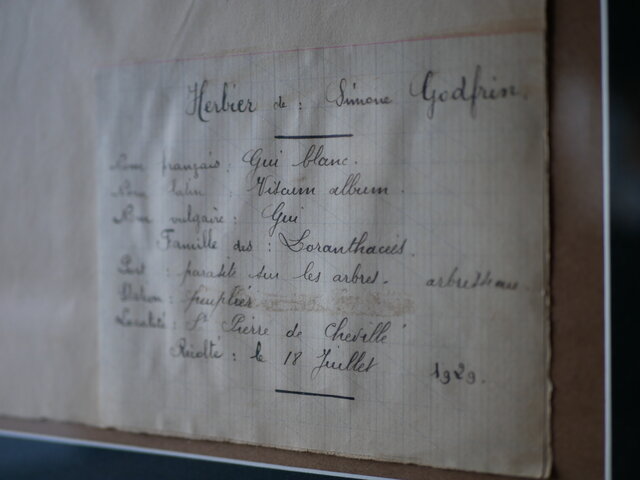 Herbier de : Simone Godfrin.
Nom français : Gui blanc.
Nom latin : Viscum album.
Nom vulgaire : Gui
Famille des : Loranthacées.
Port : parasite sur les arbres. arbrisseau.
Station : peuplier
Localité : St Pierre de Chevillé
Récolté : le 18 Juillet 1929.